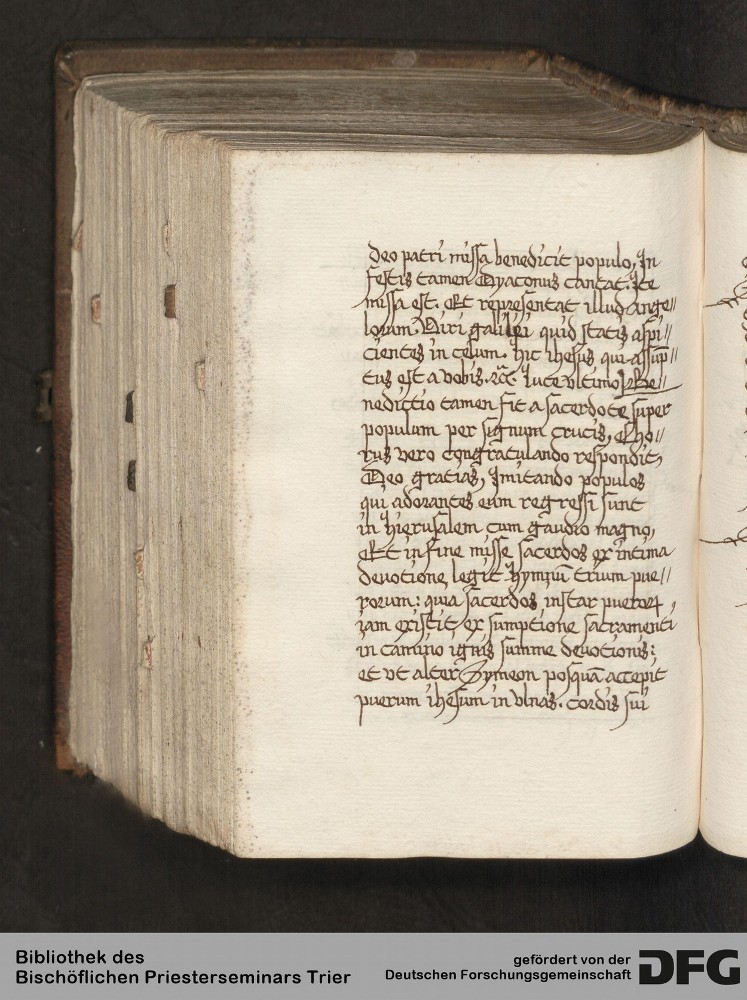 deo patri missa benedicit populo, In
festis tamen Dyaconus cantat. Ite
missa est. Et representat illud Ange//
lorum. Viri galilei quid statis aspi//
cientes in celum. hic ihesus qui assūp//
tus est a vobis. &c̄. luce vltimo Be//
nedictio tamen fit a sacerdote super
populum per signum crucis, Cho//
rus vero congratulando respondit,
Deo gratias, Imitando populos
qui adorantes eum regressi sunt
in hierusalem cum gaudio magno,
Et in fine misse sacerdos ex intima
deuotione legit hymnū trium pue//
rorum: quia sacerdos instar pueroꝝ,
iam existit, ex sumptione sacramenti
in camino ignis summe deuotionis:
et vt alter Symeon posquā accepit
puerum ihesum in vlnas. cordis sui
Bibliothek des
Bischöflichen Priesterseminars Trier
gefördert von der
Deutschen Forschungsgemeinschaft
DFG